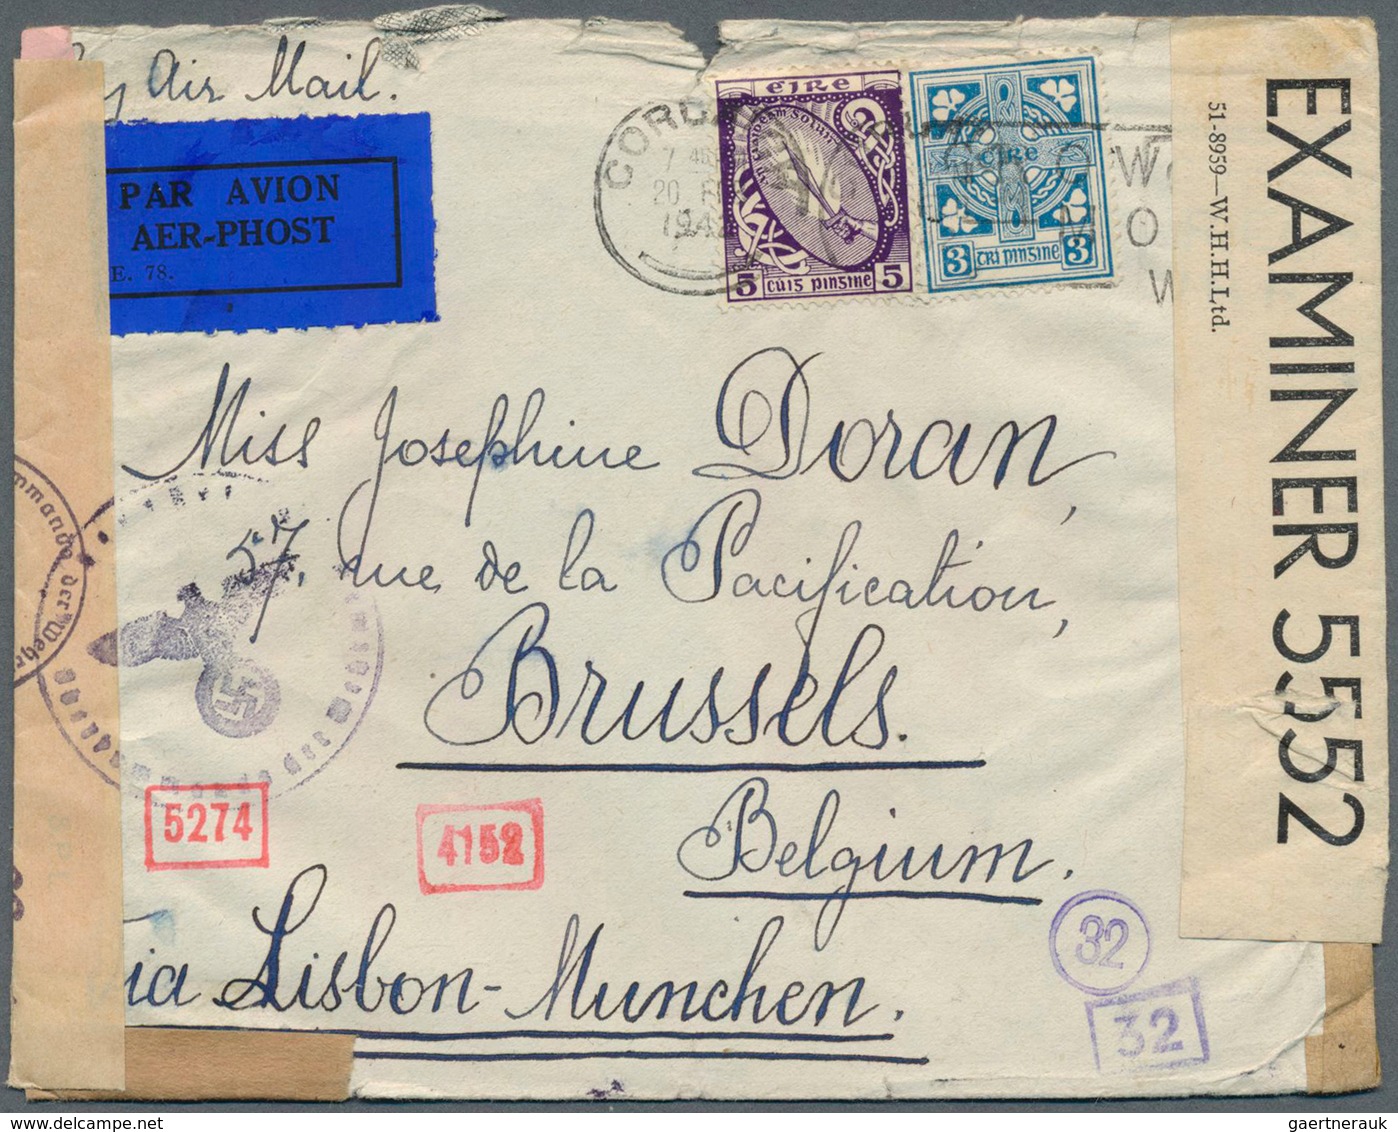 By Air Mail.
PAR AVION
AER-PHOST
E. 78.
CORCAIGH
7 45
20
1942
éIRe
5 cúis pinsine 5
éIRe
3 trí pinsine 3
Miss Josephine Doran,
57, rue de la Pacification,
Brussels.
Belgium.
Via Lisbon-Munchen.
EXAMINER 5552
51-8959—W.H.H.Ltd.
mmando der Wehr
Oberkommando der Wehrmacht
5274
4152
32
32
gaertnerauk